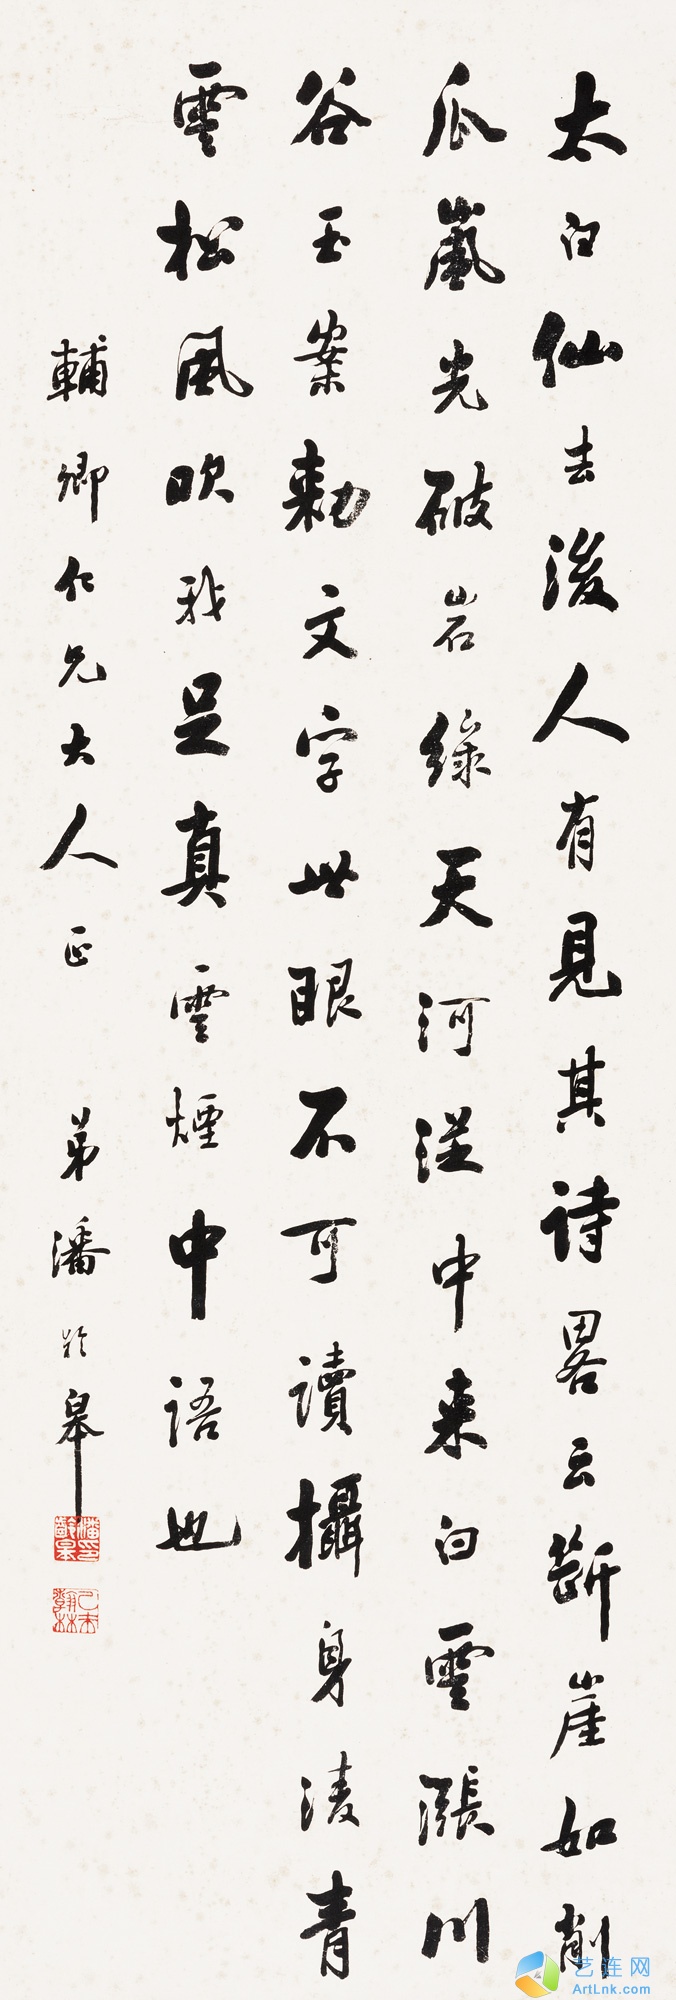 太白仙去後人有見其詩畧云斷崖如削
瓜嵐光破岩綠天河從中來白雲漲川
谷玉案勅文字世眼不可讀攝身凌青
雲松風吹我足真雲煙中語也
輔卿仁兄大人正 弟潘齡皋
潘印齡皋
乙未翰林
艺连网
ArtLnk.com